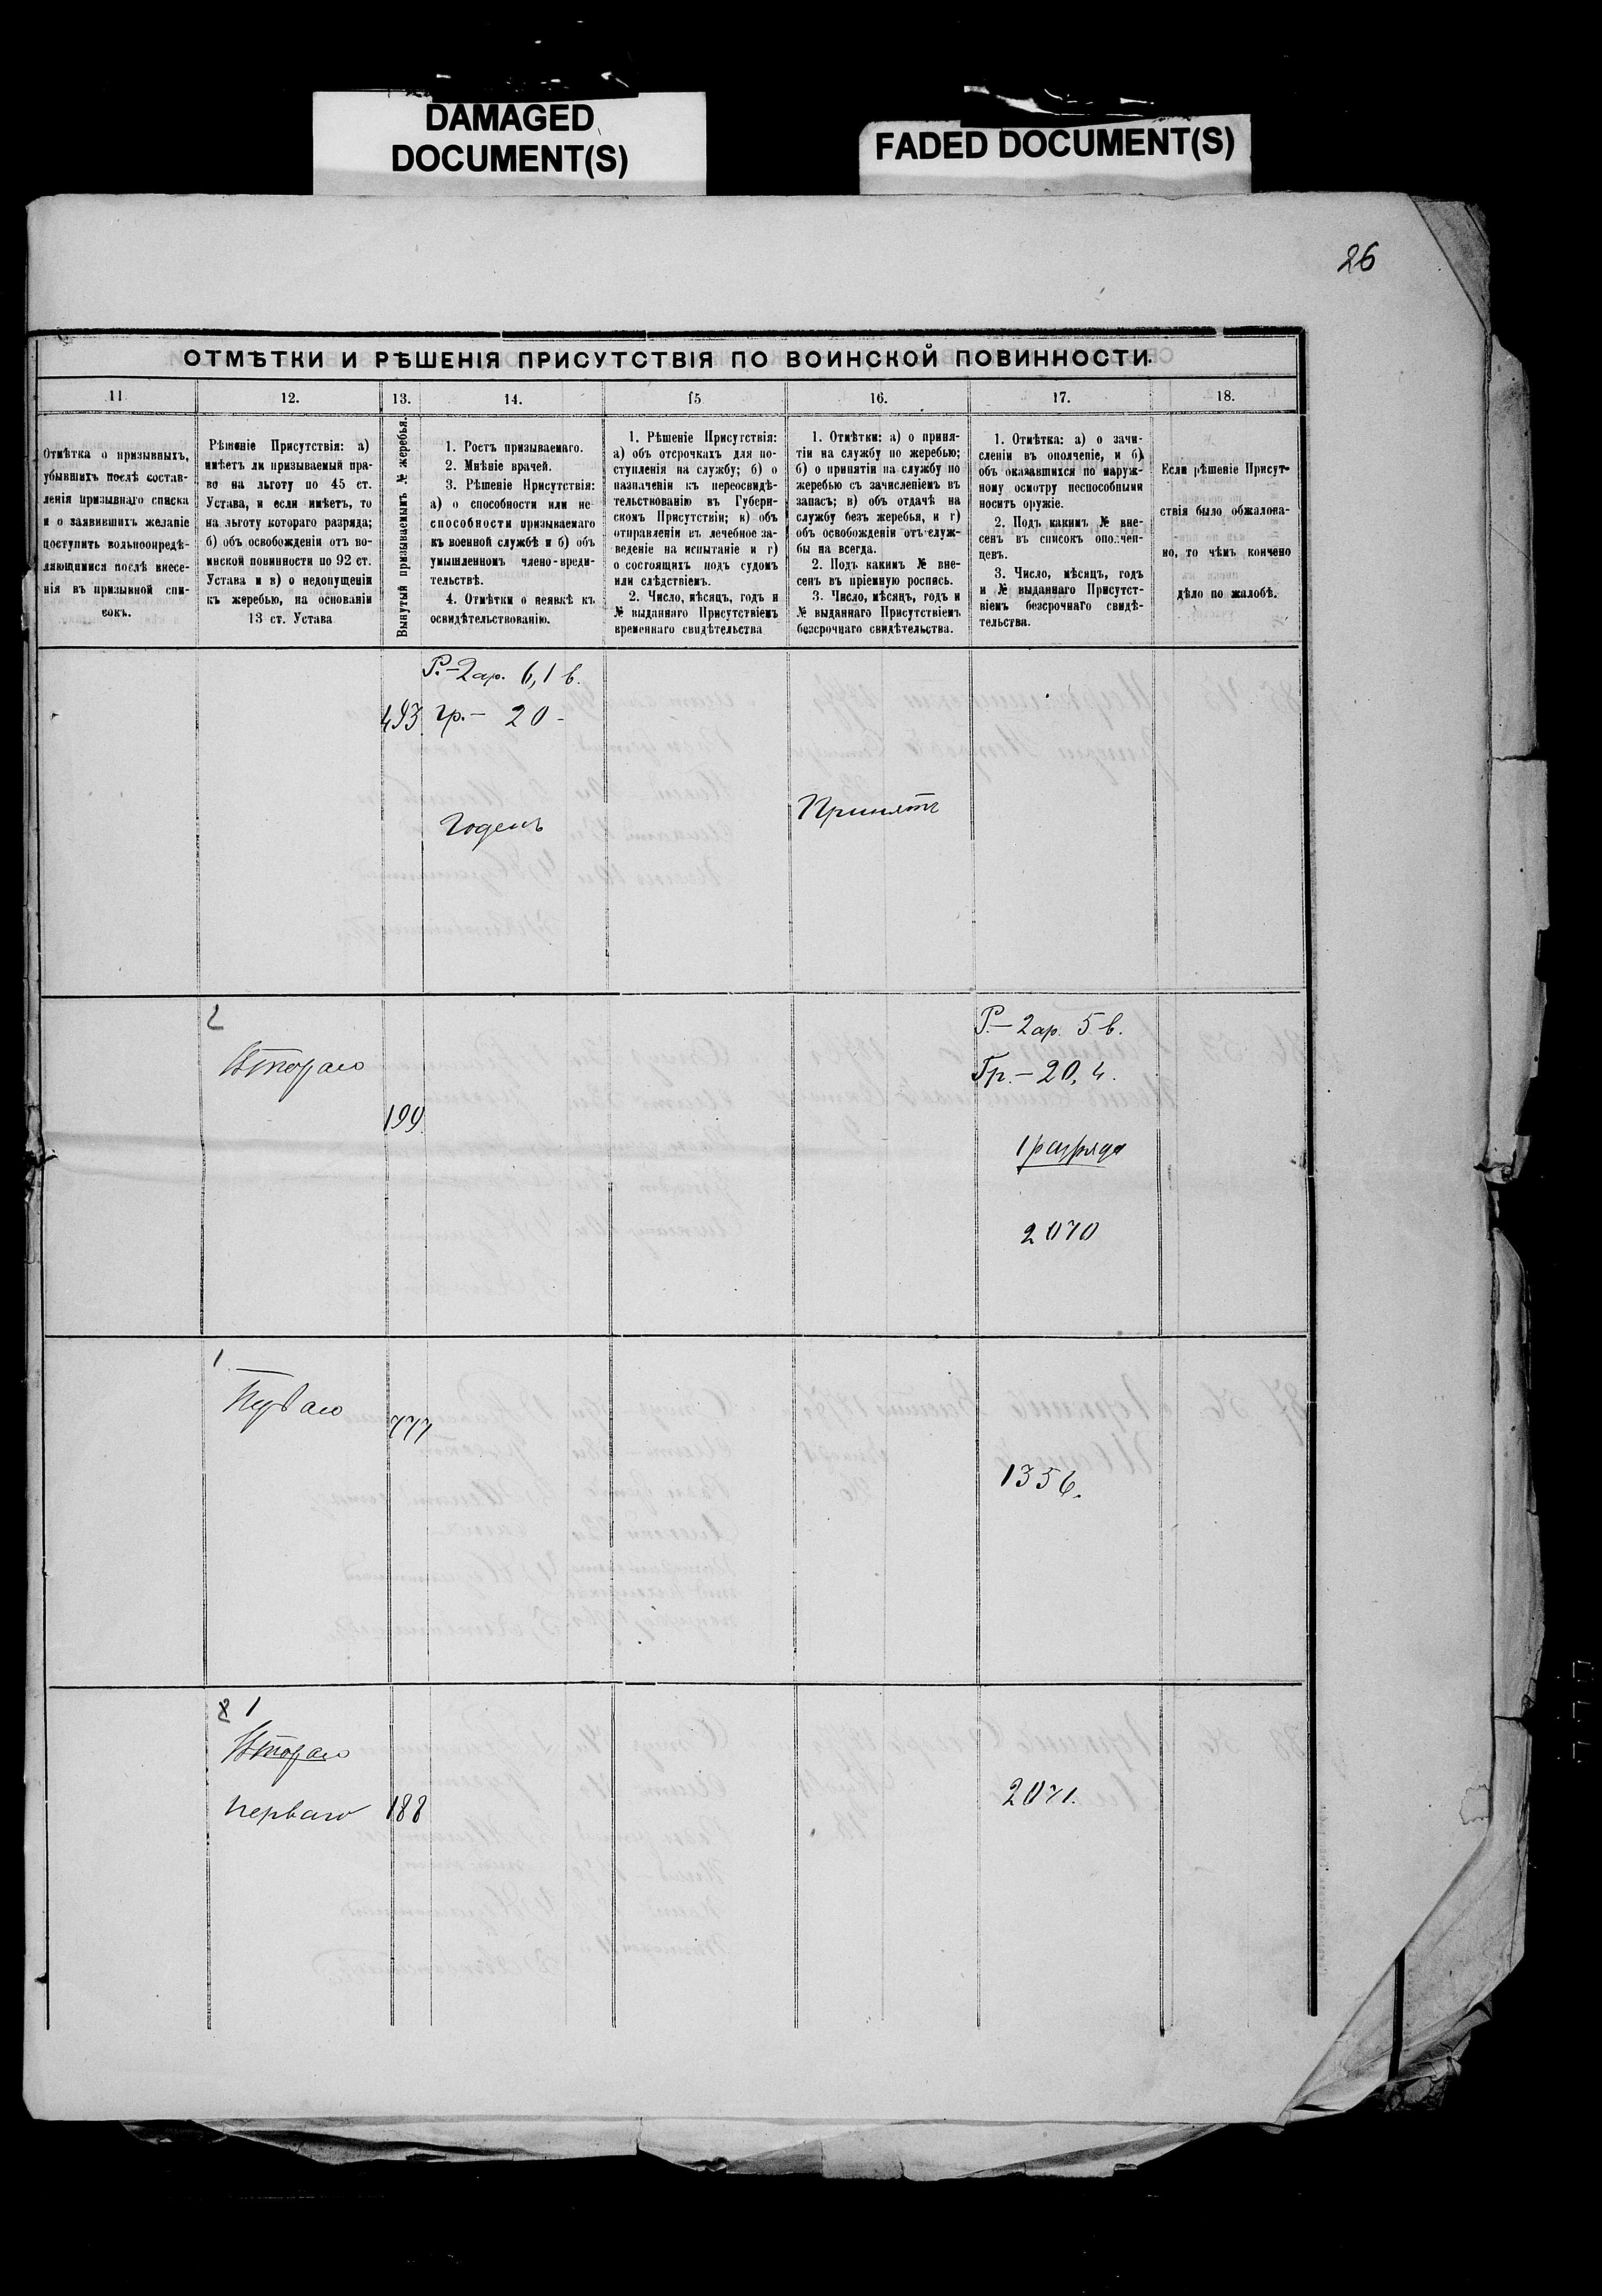 DAMAGED
DOCUMENT(S)
FADED DOCUMENT(S)
26
ОТМѢТКИ И РѢШЕНІЯ ПРИСУТСТВІЯ ПО ВОИНСКОЙ ПОВИННОСТИ.
11
12.
13.
14.
15
16.
17.
18.
Отмѣтка о призывныхъ,
убывшихъ послѣ состав-
ленія призывнаго списка
и о заявившихъ желаніе
поступить вольноопредѣ-
ляющимися послѣ внесе-
нія въ призывной спи-
сокъ.
Рѣшеніе Присутствія: а)
имѣетъ ли призываемый пра-
во на льготу по 45 ст.
Устава, и если имѣетъ, то
на льготу котораго разряда;
б) объ освобожденіи отъ во-
инской повинности по 92 ст.
Устава и в) о недопущеніи
къ жеребью, на основаніи
13 ст. Устава
Вынутый призываемымъ № жеребья.
1. Ростъ призываемаго.
2. Мнѣніе врачей.
3. Рѣшеніе Присутствія:
а) о способности или не-
способности призываемаго
къ военной службѣ и б) объ
умышленномъ члено-вреди-
тельствѣ.
4. Отмѣтки о неявкѣ къ
освидѣтельствованію.
1. Рѣшеніе Присутствія:
а) объ отсрочкахъ для по-
ступленія на службу; б) о
назначеніи къ переосвидѣ-
тельствованію въ Губерн-
скомъ Присутствіи; в) объ
отправленіи въ лечебное за-
веденіе на испытаніе и г)
о состоящихъ подъ судомъ
или слѣдствіемъ.
2. Число, мѣсяцъ, годъ и
№ выданнаго Присутствіемъ
временнаго свидѣтельства
1. Отмѣтки: а) о приня-
тіи на службу по жеребью;
б) о принятіи на службу по
жеребью съ зачисленіемъ въ
запасъ; в) объ отдачѣ на
службу безъ жеребья, и г)
объ освобожденіи отъ служ-
бы на всегда.
2. Подъ какимъ № вне-
сенъ въ пріемную роспись.
3. Число, мѣсяцъ, годъ и
№ выданнаго Присутствіемъ
безсрочнаго свидѣтельства.
1. Отмѣтка: а) о зачи-
сленіи въ ополченіе, и б)
объ оказавшихся по наруж-
ному осмотру неспособными
носить оружіе.
2. Подъ какимъ № вне-
сенъ въ списокъ ополчен-
цевъ.
3. Число, мѣсяцъ, годъ
и № выданнаго Присутст-
віемъ безсрочнаго свидѣ-
тельства.
Если рѣшеніе Присут-
ствія было обжалова-
но, то чѣмъ кончено
дѣло по жалобѣ.
Р.—2ар. 6,1 в.
493 гр.— 20 -
Годенъ
Принятъ
2
Втораго
199
Р.—2ар. 5 в.
Гр.—20,4.
1 разряда
2070
1
Перваго
777
1356.
2 1
Втораго
перваго
188
2071.